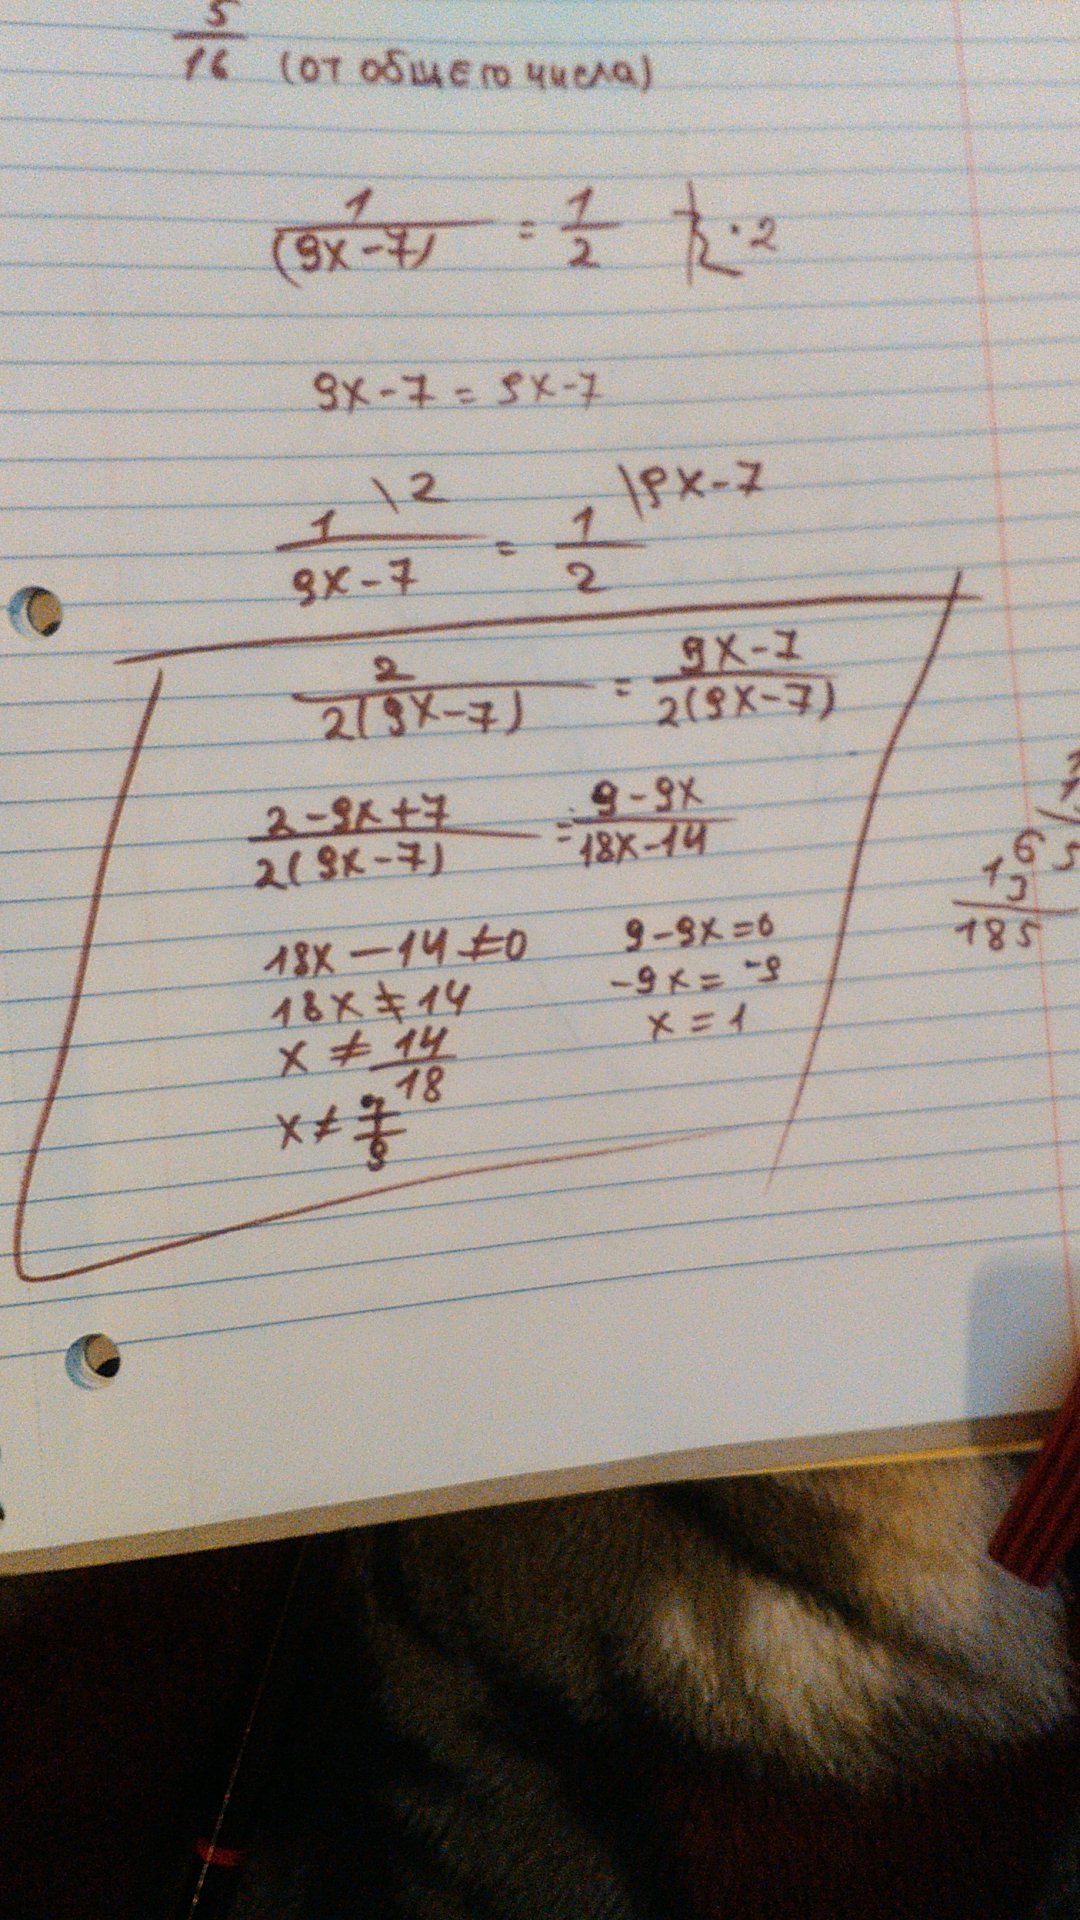 5/16 (от общего числа)
1/(9x-7) = 1/2 | · 2
9x-7 = 9x-7
1/(9x-7) \2 = 1/2 \9x-7
2/(2(9x-7)) = (9x-7)/(2(9x-7))
(2-9x+7)/(2(9x-7)) = (9-9x)/(18x-14)
18x-14≠0
18x≠14
x≠14/18
x≠7/9
9-9x=0
-9x=-9
x=1
185